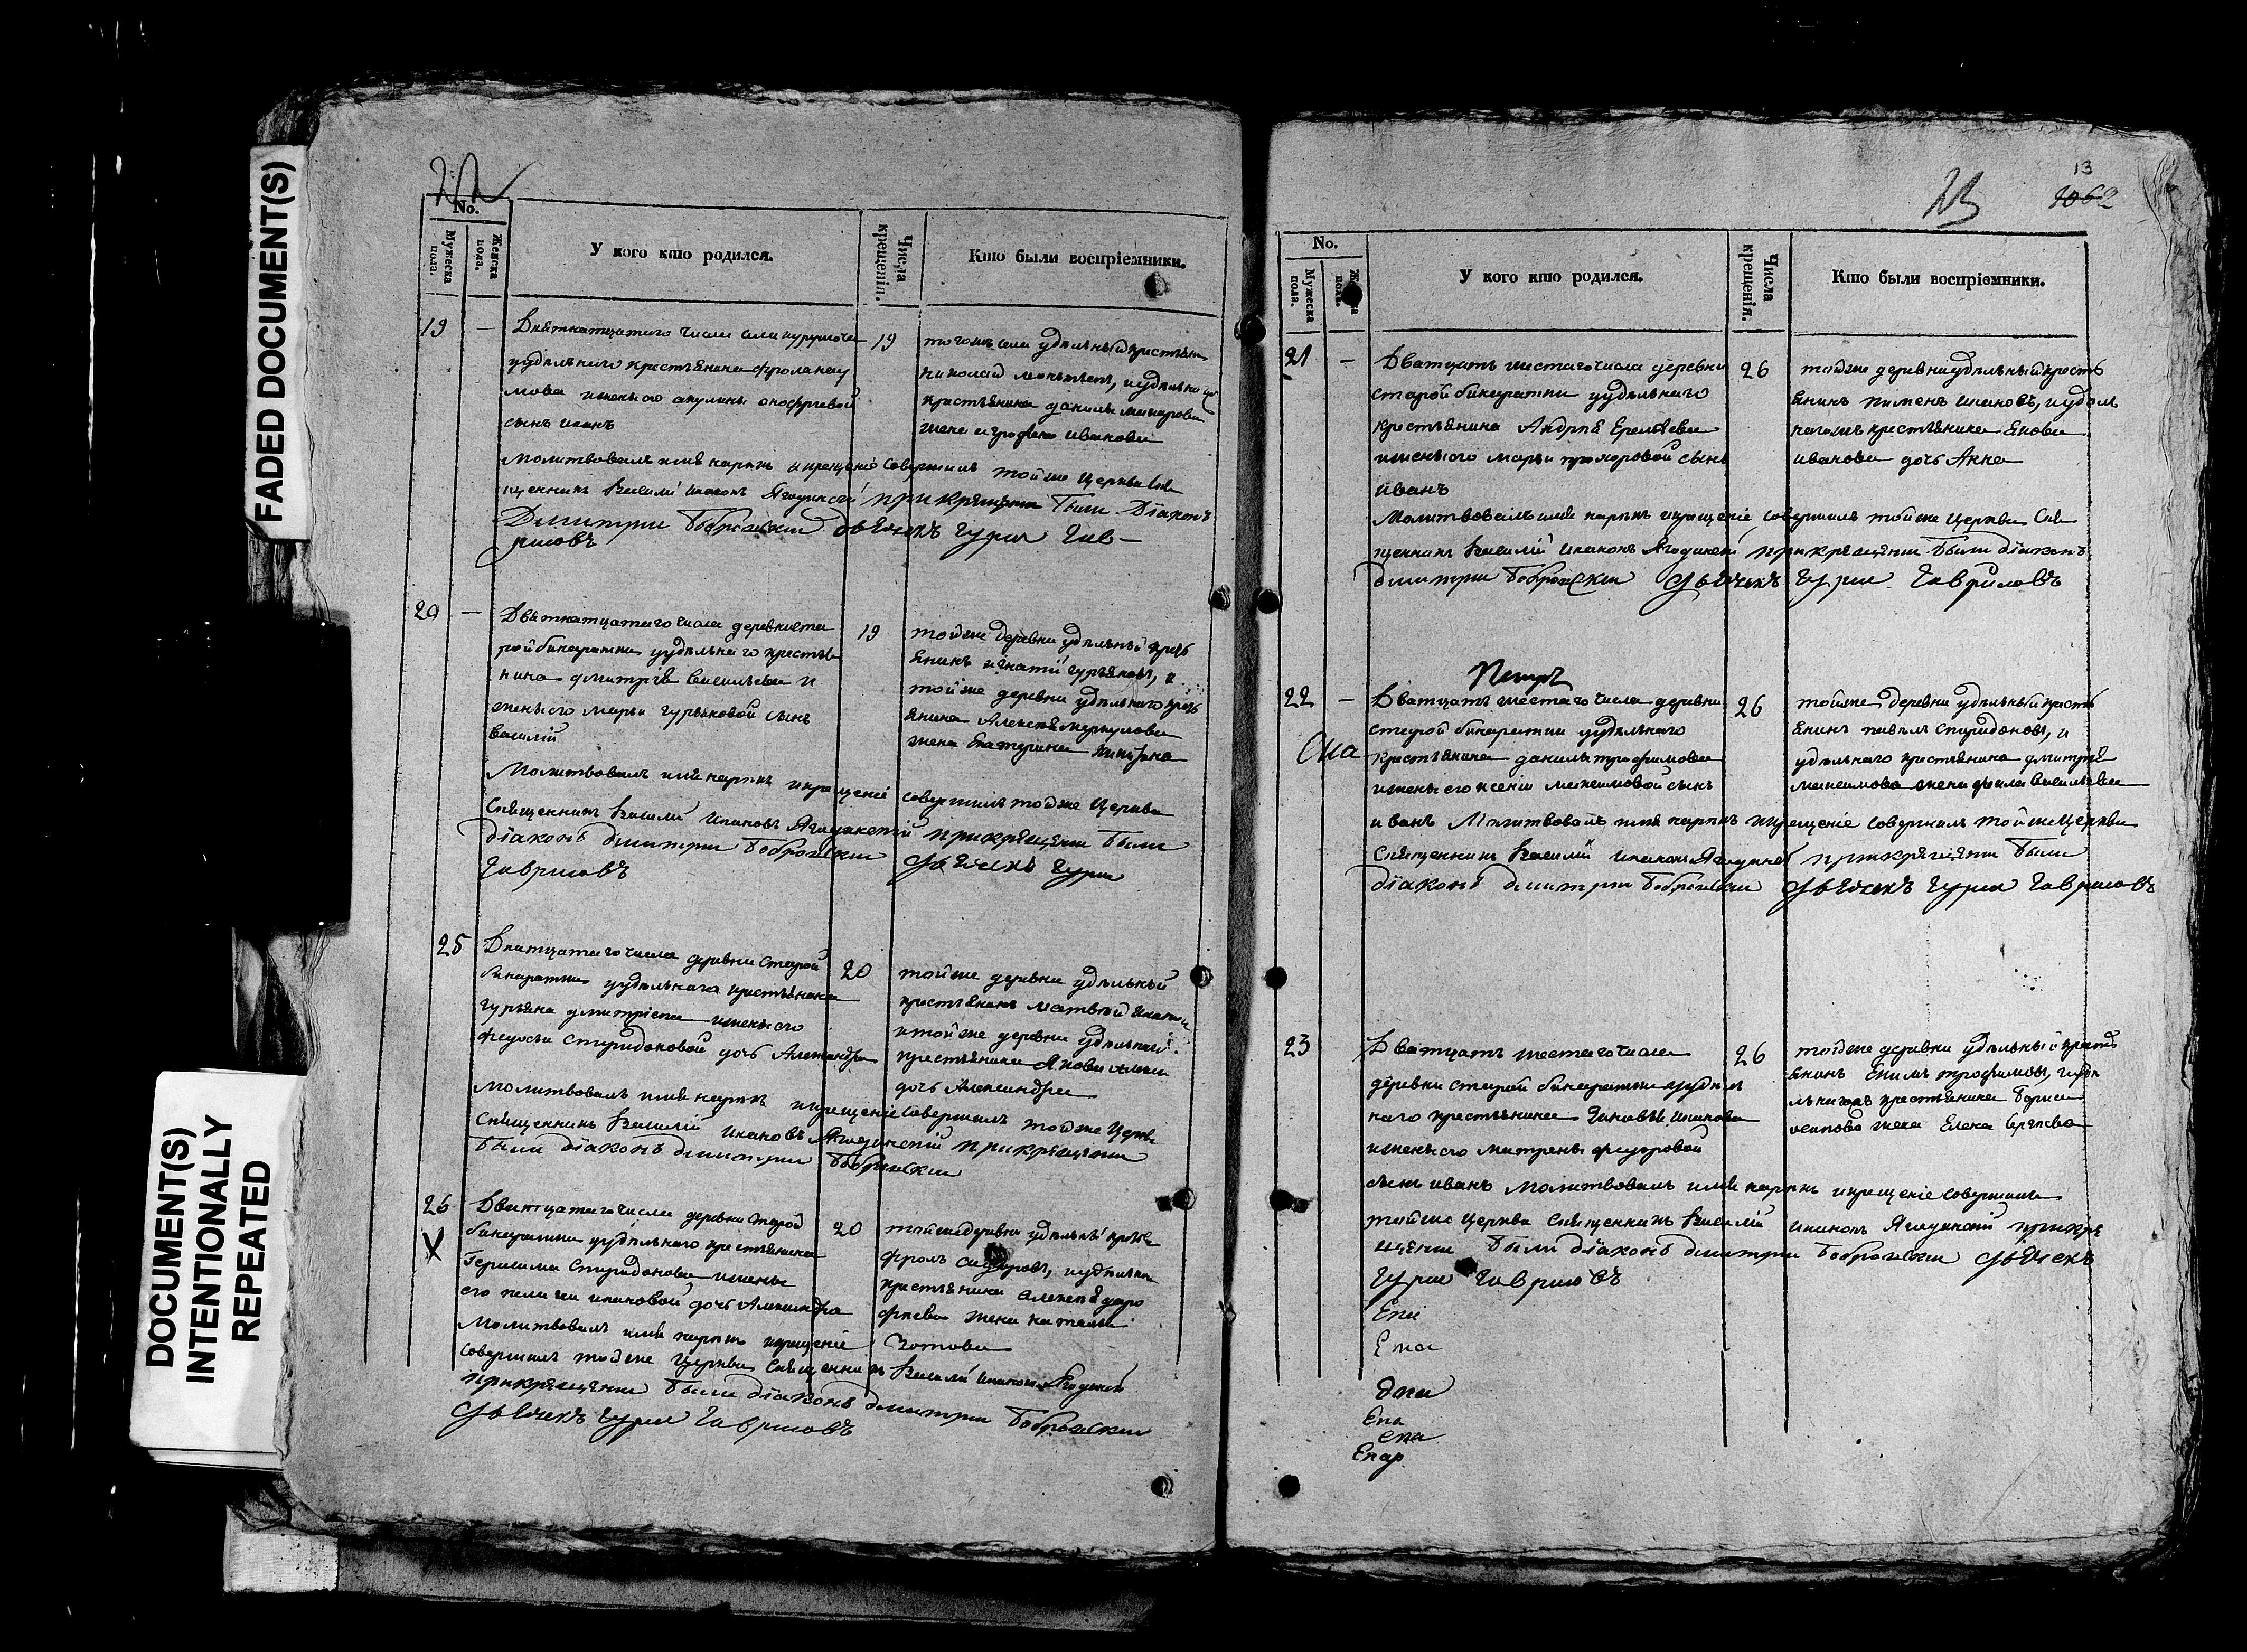 FADED DOCUMENT(S)
DOCUMENT(S)
INTENTIONALLY
REPEATED
22
No.
Мужеска пола.
Женска пола.
У кого кто родился.
Числа крещенія.
Кто были воспріемники.
19 —
крестьянина фрола нау
мова и жены его акулины онофриевой
сынъ иванъ
19
николай
крестьянина данилы
жена аграфена иванова
Молитвовалъ имя нарекъ и крещеніе совершилъ той же Церкви Свя
щенникъ Василій Ивановъ Ягодинскій при крящении были Діаконъ
Дмитрии Бобровскии дьячекъ гурии гав
риловъ
20 —
Девятнатцатаго числа деревни ста
рой бинаратки удѣльнаго крестья
нина дмитрія васильева и
жены его марьи гурьяновой сынъ
василій
19
той же деревни удѣльный кресть
янинъ игнатій гурьяновъ, и
той же деревни удѣльнаго кресть
янина Алексѣя меркулова
жена Екатерина
Молитвовалъ имя нарекъ и крещеніе совершилъ той же Церкви
Священникъ Василій Ивановъ Ягодинскій при крящении были
діаконъ дмитрии Бобровскии дьячекъ гурии
гавриловъ
25
Дватцатаго числа деревни старой
бинаратки удѣльнаго крестьянина
гурьяна дмитріева и жены его
федосьи спиридоновой дочь Александра
20
той же деревни удѣльный
крестьянинъ матвѣй
и той же деревни удѣльнаго
крестьянина Якова
дочь Александра
Молитвовалъ имя нарекъ и крещеніе совершилъ той же Церкви
Священникъ Василій Ивановъ Ягодинскій при крящении
были діаконъ дмитрии Бобровскии
26
X
Дватцатаго числа деревни старой
бинаратки удѣльнаго крестьянина
Герасима Спиридонова и жены
его пелагеи ивановой дочь Александра
20
той же деревни удѣльный
фролъ
крестьянина алексѣя доро
феева жена наталья
зотова
Молитвовалъ имя нарекъ и крещеніе
совершилъ той же Церкви Священникъ Василій Ивановъ Ягодинскій
при крящении были діаконъ дмитрии Бобровскии
дьячекъ гурии гавриловъ
23
13
1062
No.
Мужеска пола.
У кого кто родился.
Числа крещенія.
Кто были воспріемники.
21 —
Дватцать шестаго числа деревни
старой бинаратки удѣльнаго
крестьянина Андрея Еремѣева
и жены его марьи прохоровой сынъ
иванъ
26
той же деревни удѣльный кресть
янинъ пименъ ивановъ, и удѣль
наго крестьянина якова
иванова дочь Анна
Молитвовалъ имя нарекъ и крещеніе совершилъ той же Церкви Свя
щенникъ Василій Ивановъ Ягодинскій при крящении были діаконъ
дмитрии Бобровскии дьячекъ гурии гавриловъ
Петръ
22 —
Дватцать шестаго числа деревни
старой бинаратки удѣльнаго
крестьянина данилы трофимова
и жены его ксеніи максимовой сынъ
26
той же деревни удѣльный кресть
янинъ павелъ спиридоновъ, и
удѣльнаго крестьянина дмитрія
максимова жена фекла васильева
иванъ Молитвовалъ имя нарекъ и крещеніе совершилъ той же Церкви
Священникъ Василій Ивановъ Ягодинскій при крящении были
діаконъ дмитрии Бобровскии дьячекъ гурии гавриловъ
23
Дватцать шестаго числа
деревни старой бинаратки удѣль
наго крестьянина зиновья иванова
и жены его матрены федоровой
26
той же деревни удѣльный кресть
янинъ Екимъ трофимовъ, и удѣ
льнаго крестьянина бориса
осипова жена Елена Сергѣева
сынъ иванъ Молитвовалъ имя нарекъ и крещеніе совершилъ
той же Церкви Священникъ Василій Ивановъ Ягодинскій при кря
щении были діаконъ дмитрии Бобровскии дьячекъ
гурии гавриловъ
Епа
Епа
Епа
Епа
Епар